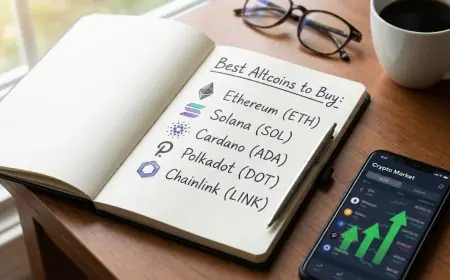 Best Altcoins to Buy:
Ethereum (ETH)
Solana (SOL)
Cardano (ADA)
Polkadot (DOT)
Chainlink (LINK)
Crypto Market